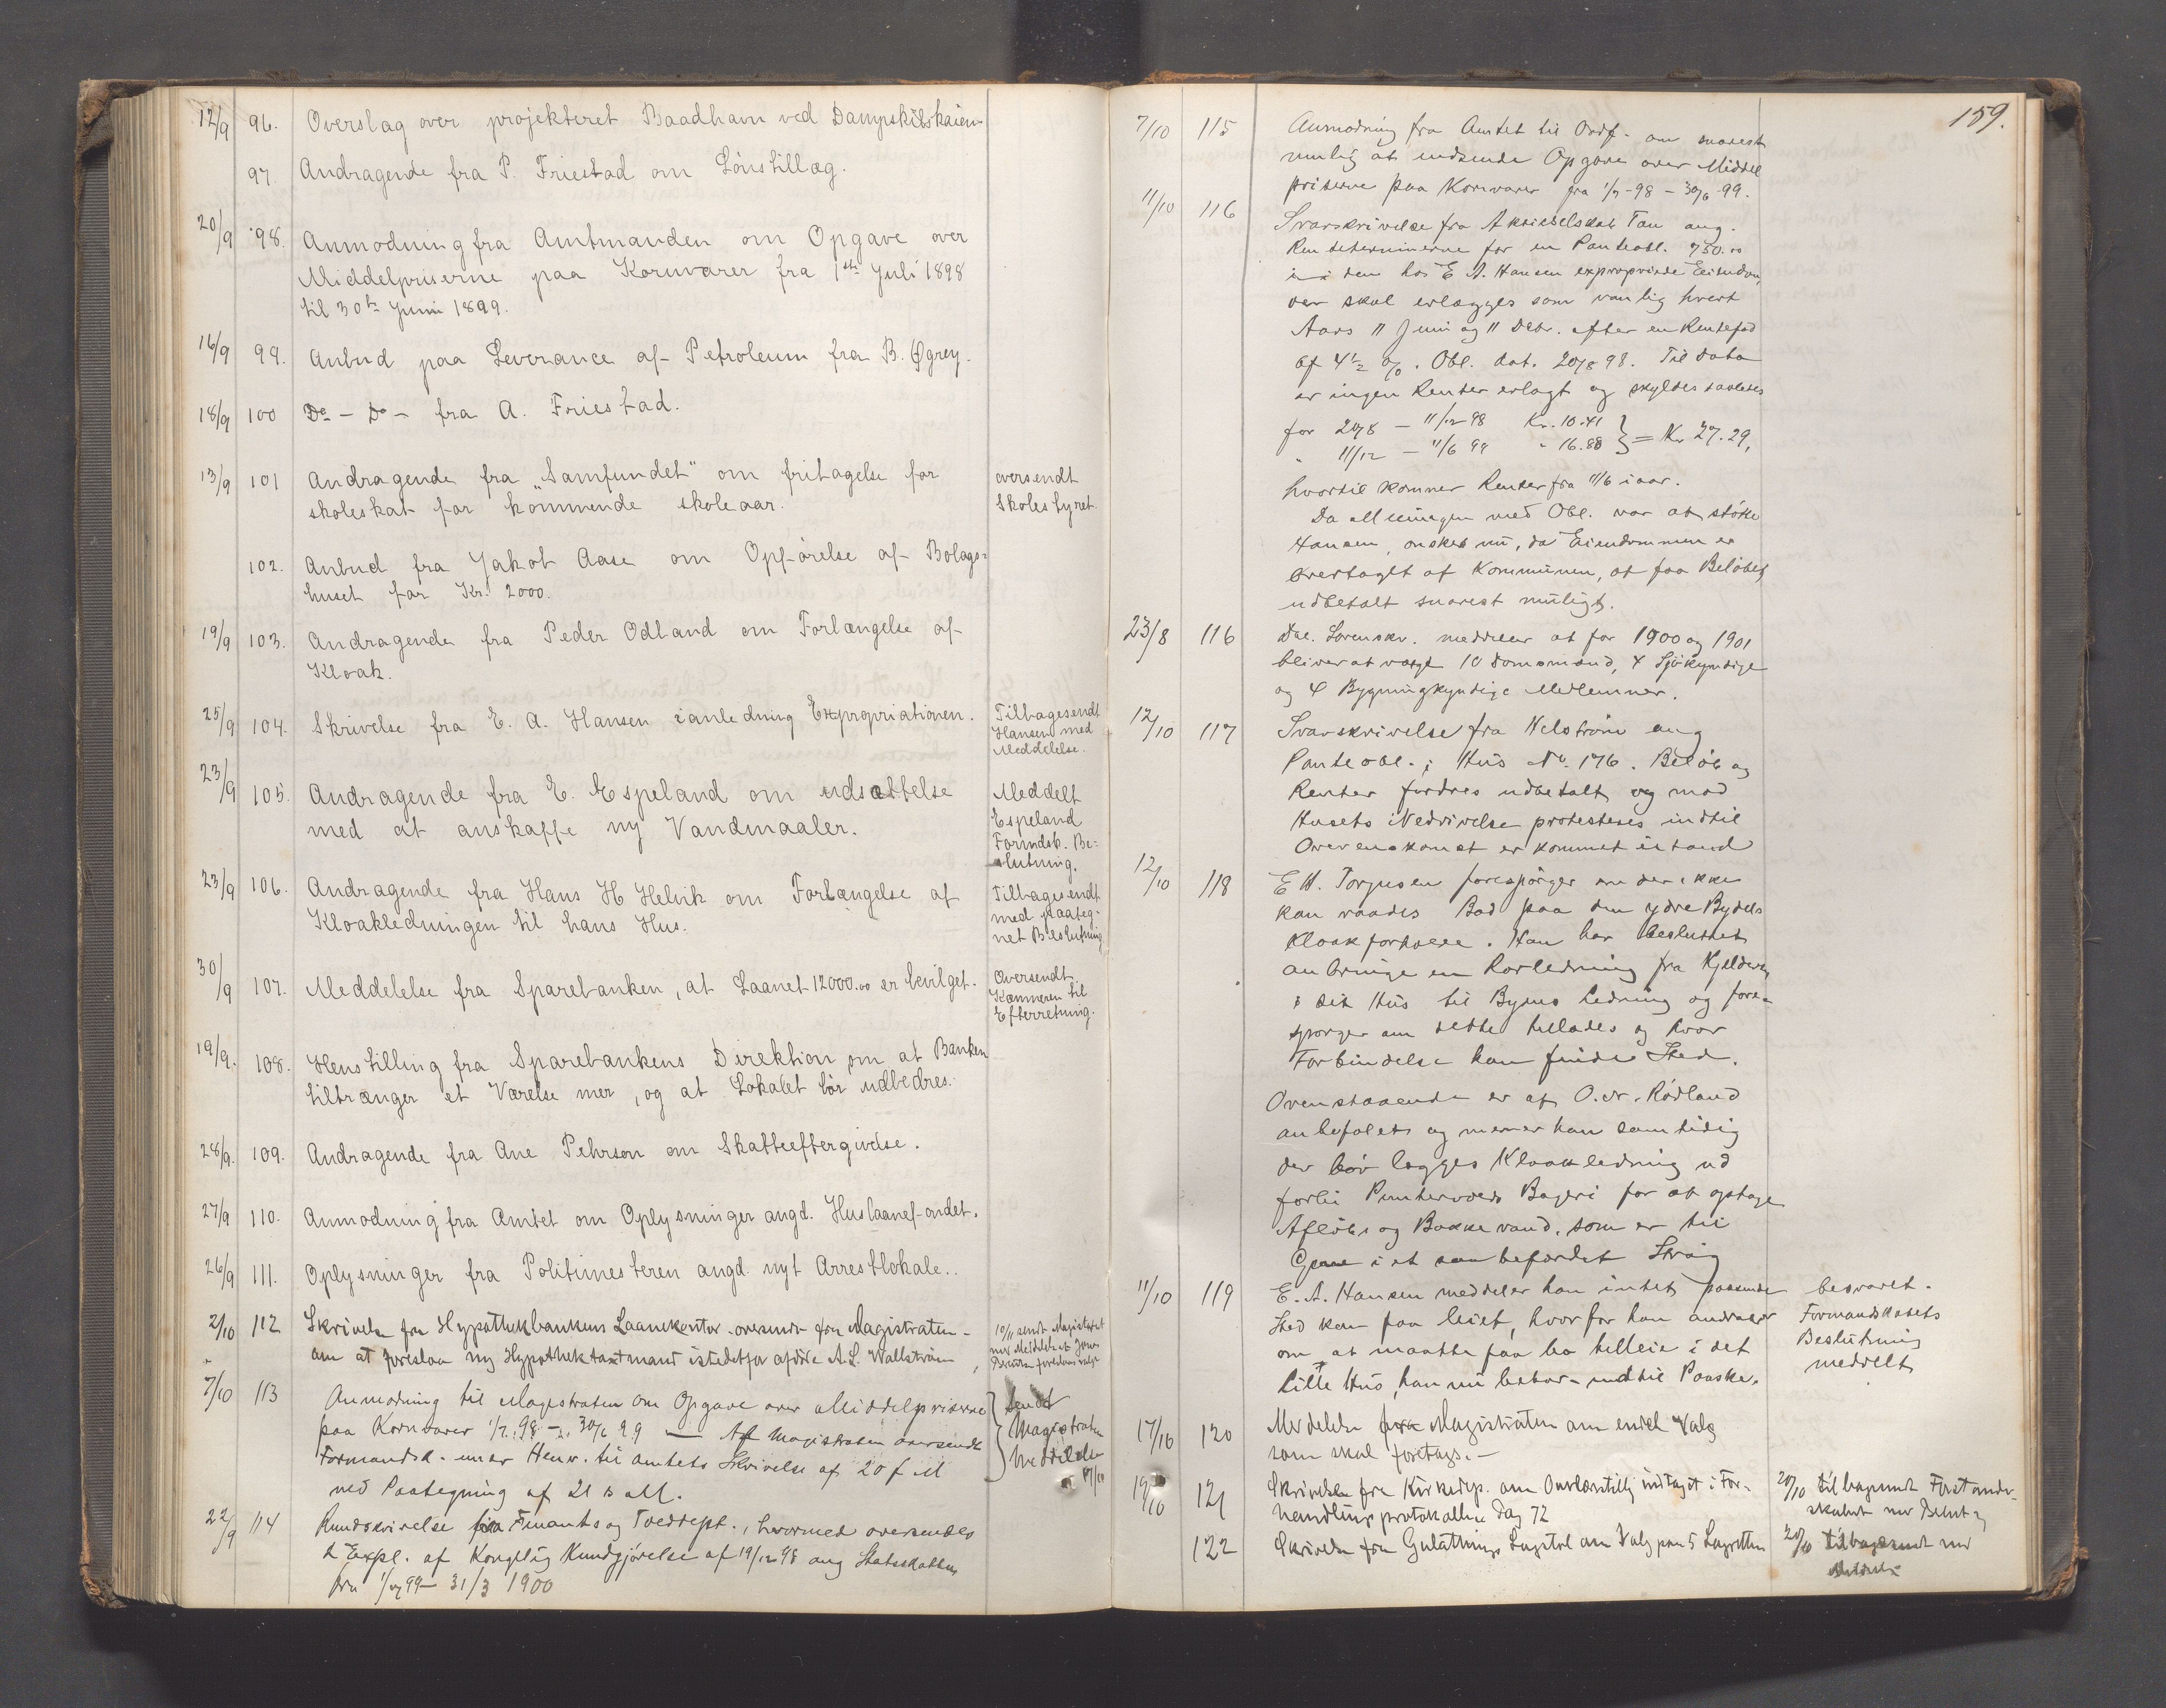 12/9 96. Overslag over projekteret Baadhavn ved Dampskibskaien
97. Andragende fra P. Friestad om Lönstillæg.
20/9 98. Anmodning fra Amtmanden om Opgave over
Middelpriserne paa Kornvarer fra 1ste Juli 1898
til 30te Juni 1899.
16/9 99. Anbud paa Leverance af Petroleum fra B. Øgrey.
18/9 100 Do - Do - fra A. Friestad.
13/9 101 Andragende fra „Samfundet" om fritagelse for oversendt
skoleskat for kommende skoleaar. Skolestyret.
102. Anbud fra Jakob Aase om Opförelse af Bolags-
huset for Kr. 2000.
19/9 103. Andragende fra Peder Odland om Forlængelse af
Kloak.
25/9 104. Skrivelse fra E. A. Hansen ianledning Expropriationen. Tilbagesendt
Hansen med
Meddelelse.
23/9 105. Andragende fra E. Espeland om udsættelse Meddelt
med at anskaffe ny Vandmaaler. Espeland
Formdsk. Be-
slutning.
23/9 106. Andragende fra Hans H Helvik om Forlængelse af Tilbagesendt
Kloakledningen til hans Hus. med paateg-
net Beslutning
30/9 107. Meddelelse fra Sparebanken, at Laanet 12000.00 er bevilget. Oversendt
Kæmneren til
Efterretning.
19/9. 108. Henstilling fra Sparebankens Direktion om at Banken
tiltrænger et Værelse mer, og at Lokalet bör udbedres.
28/9. 109. Andragende fra Ane Pehrson om Skatteeftergivelse.
27/9 110. Anmodning fra Amtet om Oplysninger angd. Huslaanefondet.
26/9 111. Oplysninger fra Politimesteren angd. nyt Arrestlokale..
2/10 112 Skrivelse fra Hypothekbankens Laanekontor oversendt fra Magistraten - 10/11 sendt Magistratet
om at foreslaa ny Hypothektaxtmand istedetfor afdöde A.L. Wallström, med Meddelelse at
7/10 113 Anmodning til Magistraten om Opgave over Middelpriserne sendt
paa Kornvarer 1/7 98 - 30/6 99 — Af Magistraten oversendt Magistraten
Formandsk. under Henv. til Amtets Skrivelse af 20 f M Meddelelse
ved Paategning af 21 s M. 17/10
22/9 114 Rundskrivelse fra Finants og Tolddept., hvormed oversendes
2 Expl. af Kongelig Kundgjørelse af 19/12 98 ang Statsskatten
fra 99 - 31/3 1900
159.
7/10 115 Anmodning fra Amtet til Ordf. om snarest
mulig at indsende Opgave over Middel
priserne paa Kornvarer fra 1/7-98 - 30/6-99.
11/10 116 Svarskrivelse fra Aktieselskab Tau ang.
Renteterminerne for en Panteobl. 750.00
i den hos E A. Hansen exproprierede Eiendom,
der skal erlægges som vanlig hvert
Aars 11 Juni og 11 Debr. efter en Rentefod
af 4½ %. Obl. dat. 20/8 98. Til Dato
er ingen Renter erlagt og skyldes saaledes
for 20/8 — 11/12 98 Kr. 10.41
" 11/12 — 11/6 99 " 16.88 } = Kr 27.29,
hvortil kommer Renter fra 11/6 iaar.
Da Meningen med Obl. var at støtte
Hansen, ønskes nu, da Eiendommen er
overtaget af Kommunen, at faa Beløbet
udbetalt snarest muligt.
23/8 116 Dal. Sorenskr. meddeler at for 1900 og 1901
bliver at vælge 10 Domsmænd, 4 Sjökyndige
og 4 Bygningkyndige Medlemmer.
12/10 117 Svarskrivelse fra Helström ang
Panteobl. i Hus No. 176. Beløb og
Renter fordres udbetalt og mod
Husets Nedrivelse protesteres indtil
Overenskomst er kommet istand
12/10 118 E H. Torgusen forespörger om der ikke
kan raades Bod paa den ydre Bydels
Kloakforholde. Han har besluttet
anbringe en Rørledning fra Kjelderen
i sit Hus til Byens Ledning og fore-
spørger om dette tillades og hvor
Forbindelse kan finde Sted.
Ovenstaaende er af O. N. Rödland
anbefalet og mener han samtidig
der bør lægges Kloakledning ud
forbi Puntervolds Bageri for at optage
Afløbs og Bakkevand, som er til
Gene i et saa befærdet Strög
11/10 119 E. A. Hansen meddeler han intet passende besvaret.
Sted kan faa leiet, hvorfor han andrager Formandskabets
om at maatte faa bo tilleie i det Beslutning
lille Hus, han nu bebor indtil Paaske. meddelt
17/10 120 Meddelelse fra Magistraten om endel Valg
som skal foretages. -
19/10 121 Skrivelse fra Kirkedep. om indtaget i For- 20/10 tilbagesendt
handlingsprotokollen Dag 72
122 Skrivelse fra Gulathings Lagstol om Valg paa 5 Lagretten 20/10 tilbagesendt med